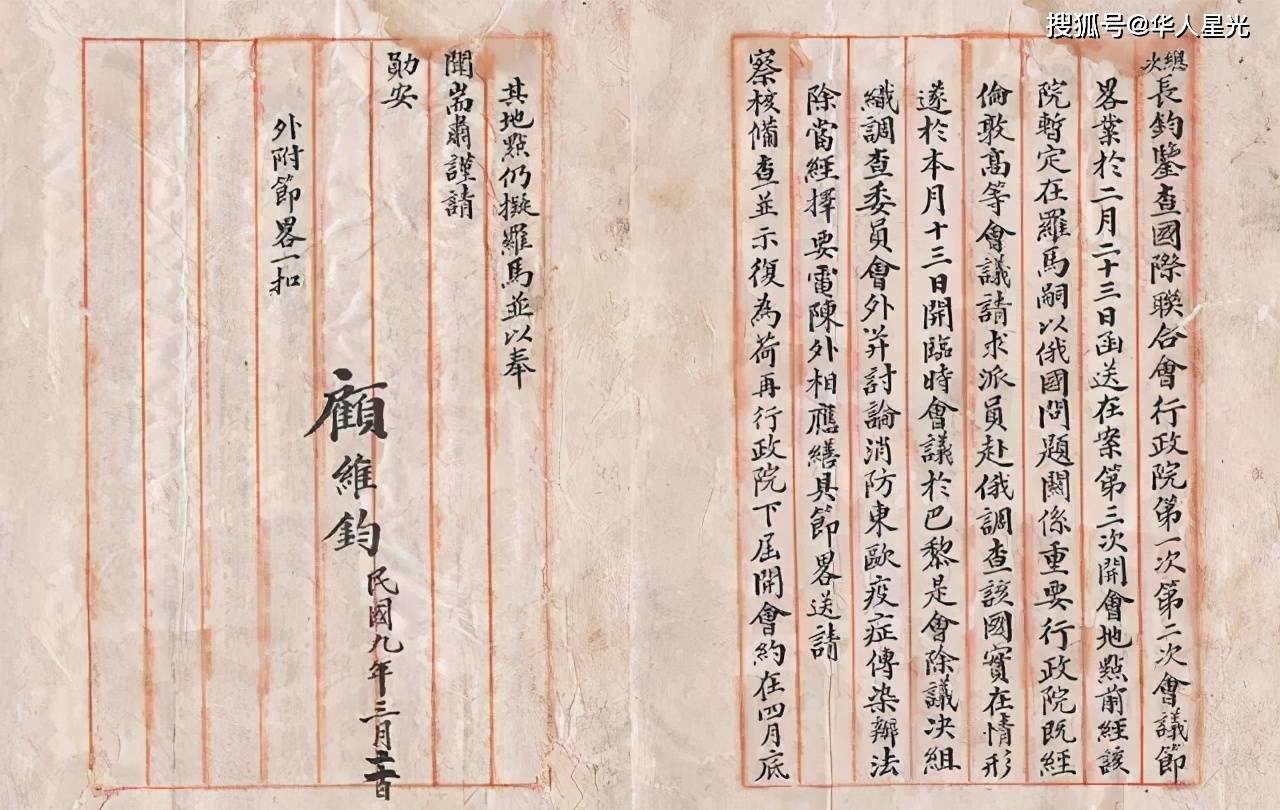 搜狐号@华人星光
總次長鈞鑒查國際聯合會行政院第一次第二次會議節
畧業於二月二十三日函送在案第三次開會地點前經該
院暫定在羅馬嗣以俄國問題關係重要行政院既經
倫敦高等會議請求派員赴俄調查該國實在情形
遂於本月十三日開臨時會議於巴黎是會除議決組
織調查委員會外并討論消防東歐疫症傳染辦法
除當經擇要電陳外相應繕具節畧送請
察核備查並示復為荷再行政院下屆開會約在四月底
其地點仍擬羅馬並以奉
聞耑肅謹請
勛安
外附節畧一扣
顧維鈞
民國九年三月